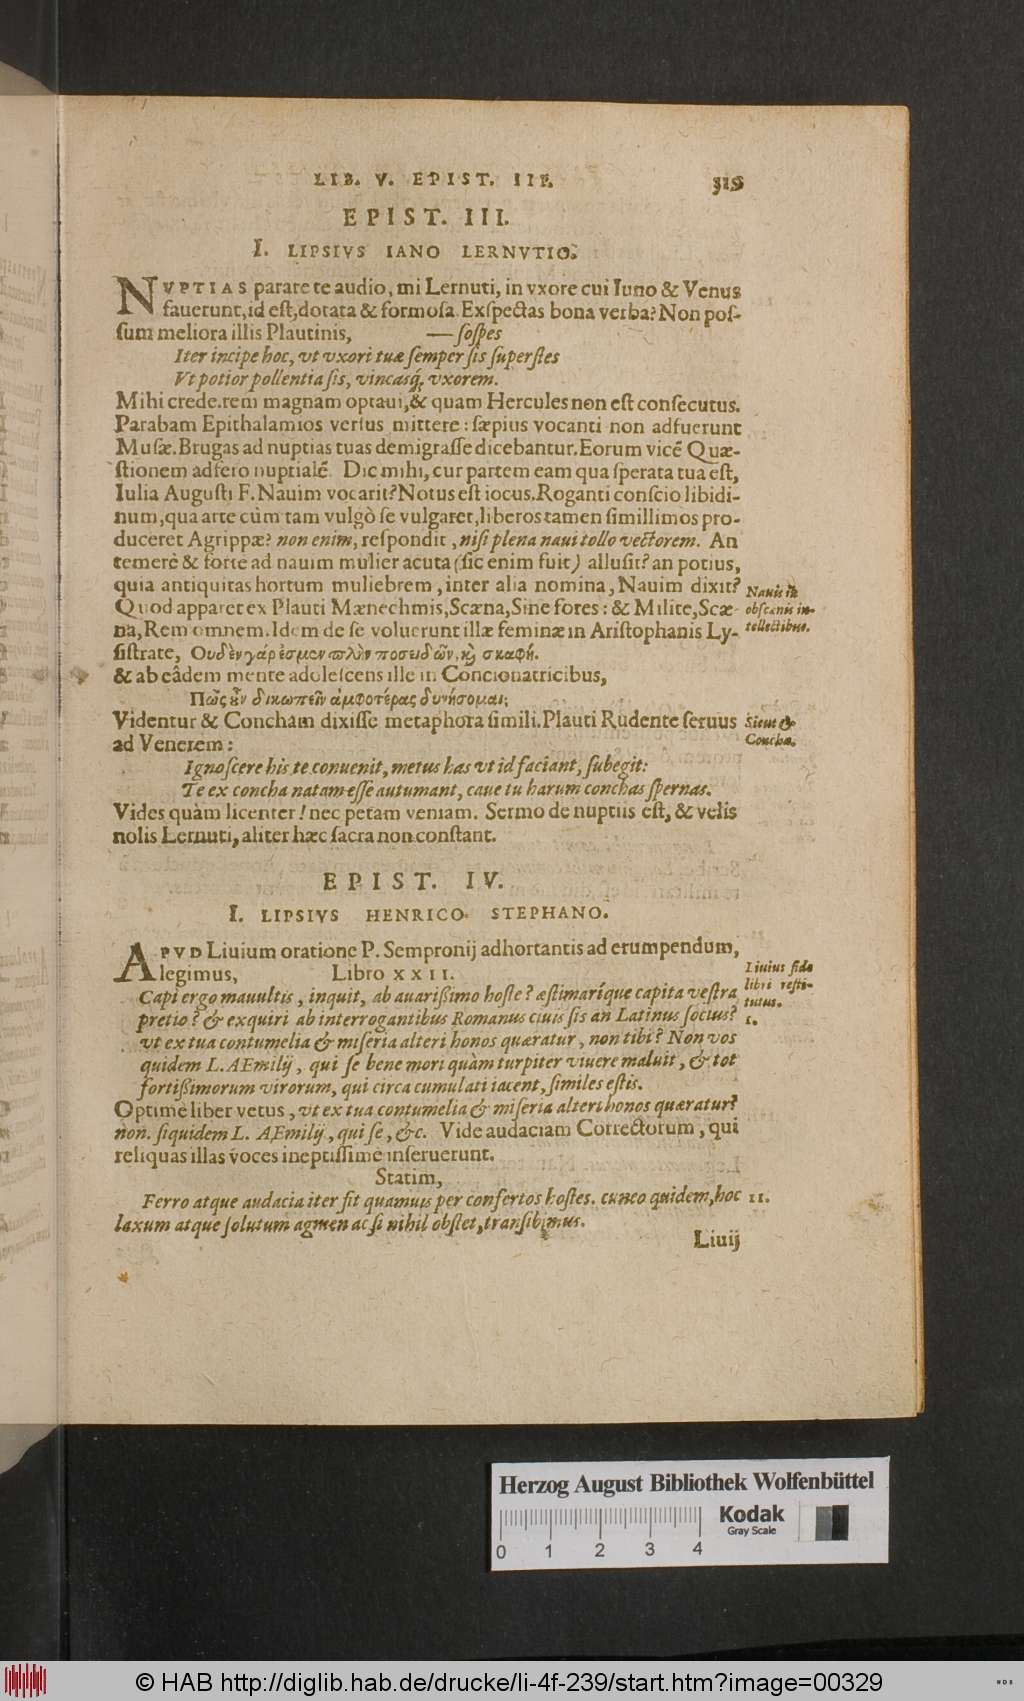 LIB. V. EPIST. III. 315
EPIST. III.
I. LIPSIVS IANO LERNVTIO.
NVPTIAS parare te audio, mi Lernuti, in vxore cui Iuno & Venus
fauerunt, id eſt, dotata & formoſa. Exſpectas bona verba? Non poſ-
ſum meliora illis Plautinis, — ſoſpes
Iter incipe hoc, vt vxori tuæ ſemper ſis ſuperſtes
Vt potior pollentia ſis, vincasq́; vxorem.
Mihi crede. rem magnam optaui, & quam Hercules non eſt conſecutus.
Parabam Epithalamios verſus mittere: ſæpius vocanti non adfuerunt
Muſæ. Brugas ad nuptias tuas demigraſſe dicebantur. Eorum vicē Quæ-
ſtionem adfero nuptialē. Dic mihi, cur partem eam qua ſperata tua eſt,
Iulia Auguſti F. Nauim vocarit? Notus eſt iocus. Roganti conſcio libidi-
num, qua arte cùm tam vulgò ſe vulgaret, liberos tamen ſimillimos pro-
duceret Agrippæ? non enim, reſpondit, niſi plena naui tollo vectorem. An
temerè & forte ad nauim mulier acuta (ſic enim fuit) alluſit? an potius,
quia antiquitas hortum muliebrem, inter alia nomina, Nauim dixit?
Nauis in
Quod apparet ex Plauti Mænechmis, Scæna, Sine fores: & Milite, Scæ-
obſcænis in-
na, Rem omnem. Idem de ſe voluerunt illæ feminæ in Ariſtophanis Ly-
tellectibus.
ſiſtrate, Ουδὲν γάρ ἐσμεν πλὴν ποσειδῶν, κὶ σκαφή.
& ab eâdem mente adoleſcens ille in Concionatricibus,
Πῶς ἦν δικωπεῖν ἀμφοτέρας δυνήσομαι;
Videntur & Concham dixiſſe metaphora ſimili. Plauti Rudente ſeruus
Sicut &
ad Venerem:
Concha.
Ignoſcere his te conuenit, metus has vt id faciant, ſubegit:
Te ex concha natam eſſe autumant, caue tu harum conchas ſpernas.
Vides quàm licenter! nec petam veniam. Sermo de nuptiis eſt, & velis
nolis Lernuti, aliter hæc ſacra non conſtant.
EPIST. IV.
I. LIPSIVS HENRICO STEPHANO.
APVD Liuium oratione P. Sempronij adhortantis ad erumpendum,
legimus, Libro XXII.
Liuius fide
Capi ergo mauultis, inquit, ab auariſſimo hoſte? æſtimaríque capita veſtra
libri reſti-
tutus.
pretio? & exquiri ab interrogantibus Romanus ciuis ſis an Latinus ſocius?
I.
vt ex tua contumelia & miſeria alteri honos quæratur, non tibi? Non vos
quidem L. AEmilij, qui ſe bene mori quàm turpiter viuere maluit, & tot
fortiſſimorum virorum, qui circa cumulati iacent, ſimiles eſtis.
Optimè liber vetus, vt ex tua contumelia & miſeria alteri honos quæratur?
non. ſiquidem L. AEmilij, qui ſe, &c. Vide audaciam Correctorum, qui
reliquas illas voces ineptiſſimè inſeruerunt.
Statim,
Ferro atque audacia iter fit quamuis per confertos hoſtes. cuneo quidem, hoc
II.
laxum atque ſolutum agmen ac ſi nihil obſtet, tranſibimus.
Liuij
Herzog August Bibliothek Wolfenbüttel
Kodak
Gray Scale
0 1 2 3 4
© HAB http://diglib.hab.de/drucke/li-4f-239/start.htm?image=00329